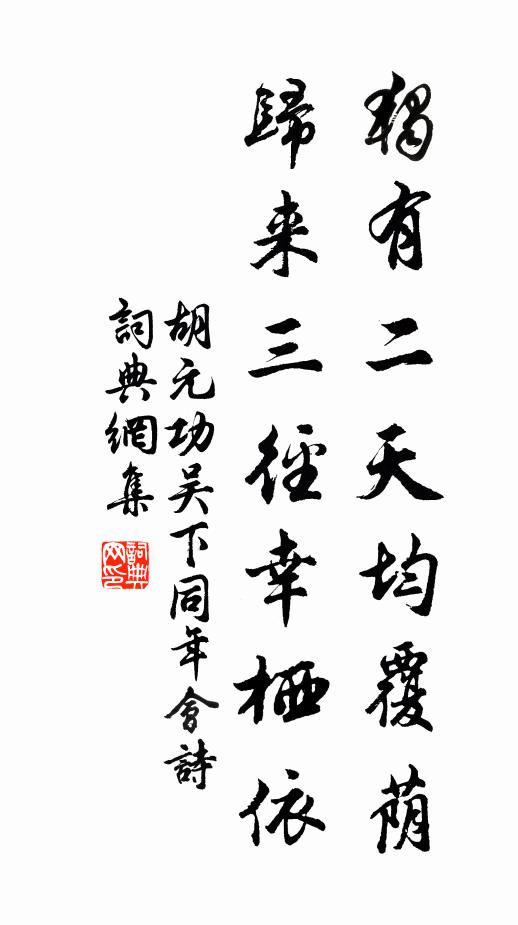 獨有二天均覆蔭
歸来三徑幸栖依
胡元功吴下同年會詩
詞典網集
詞典網印